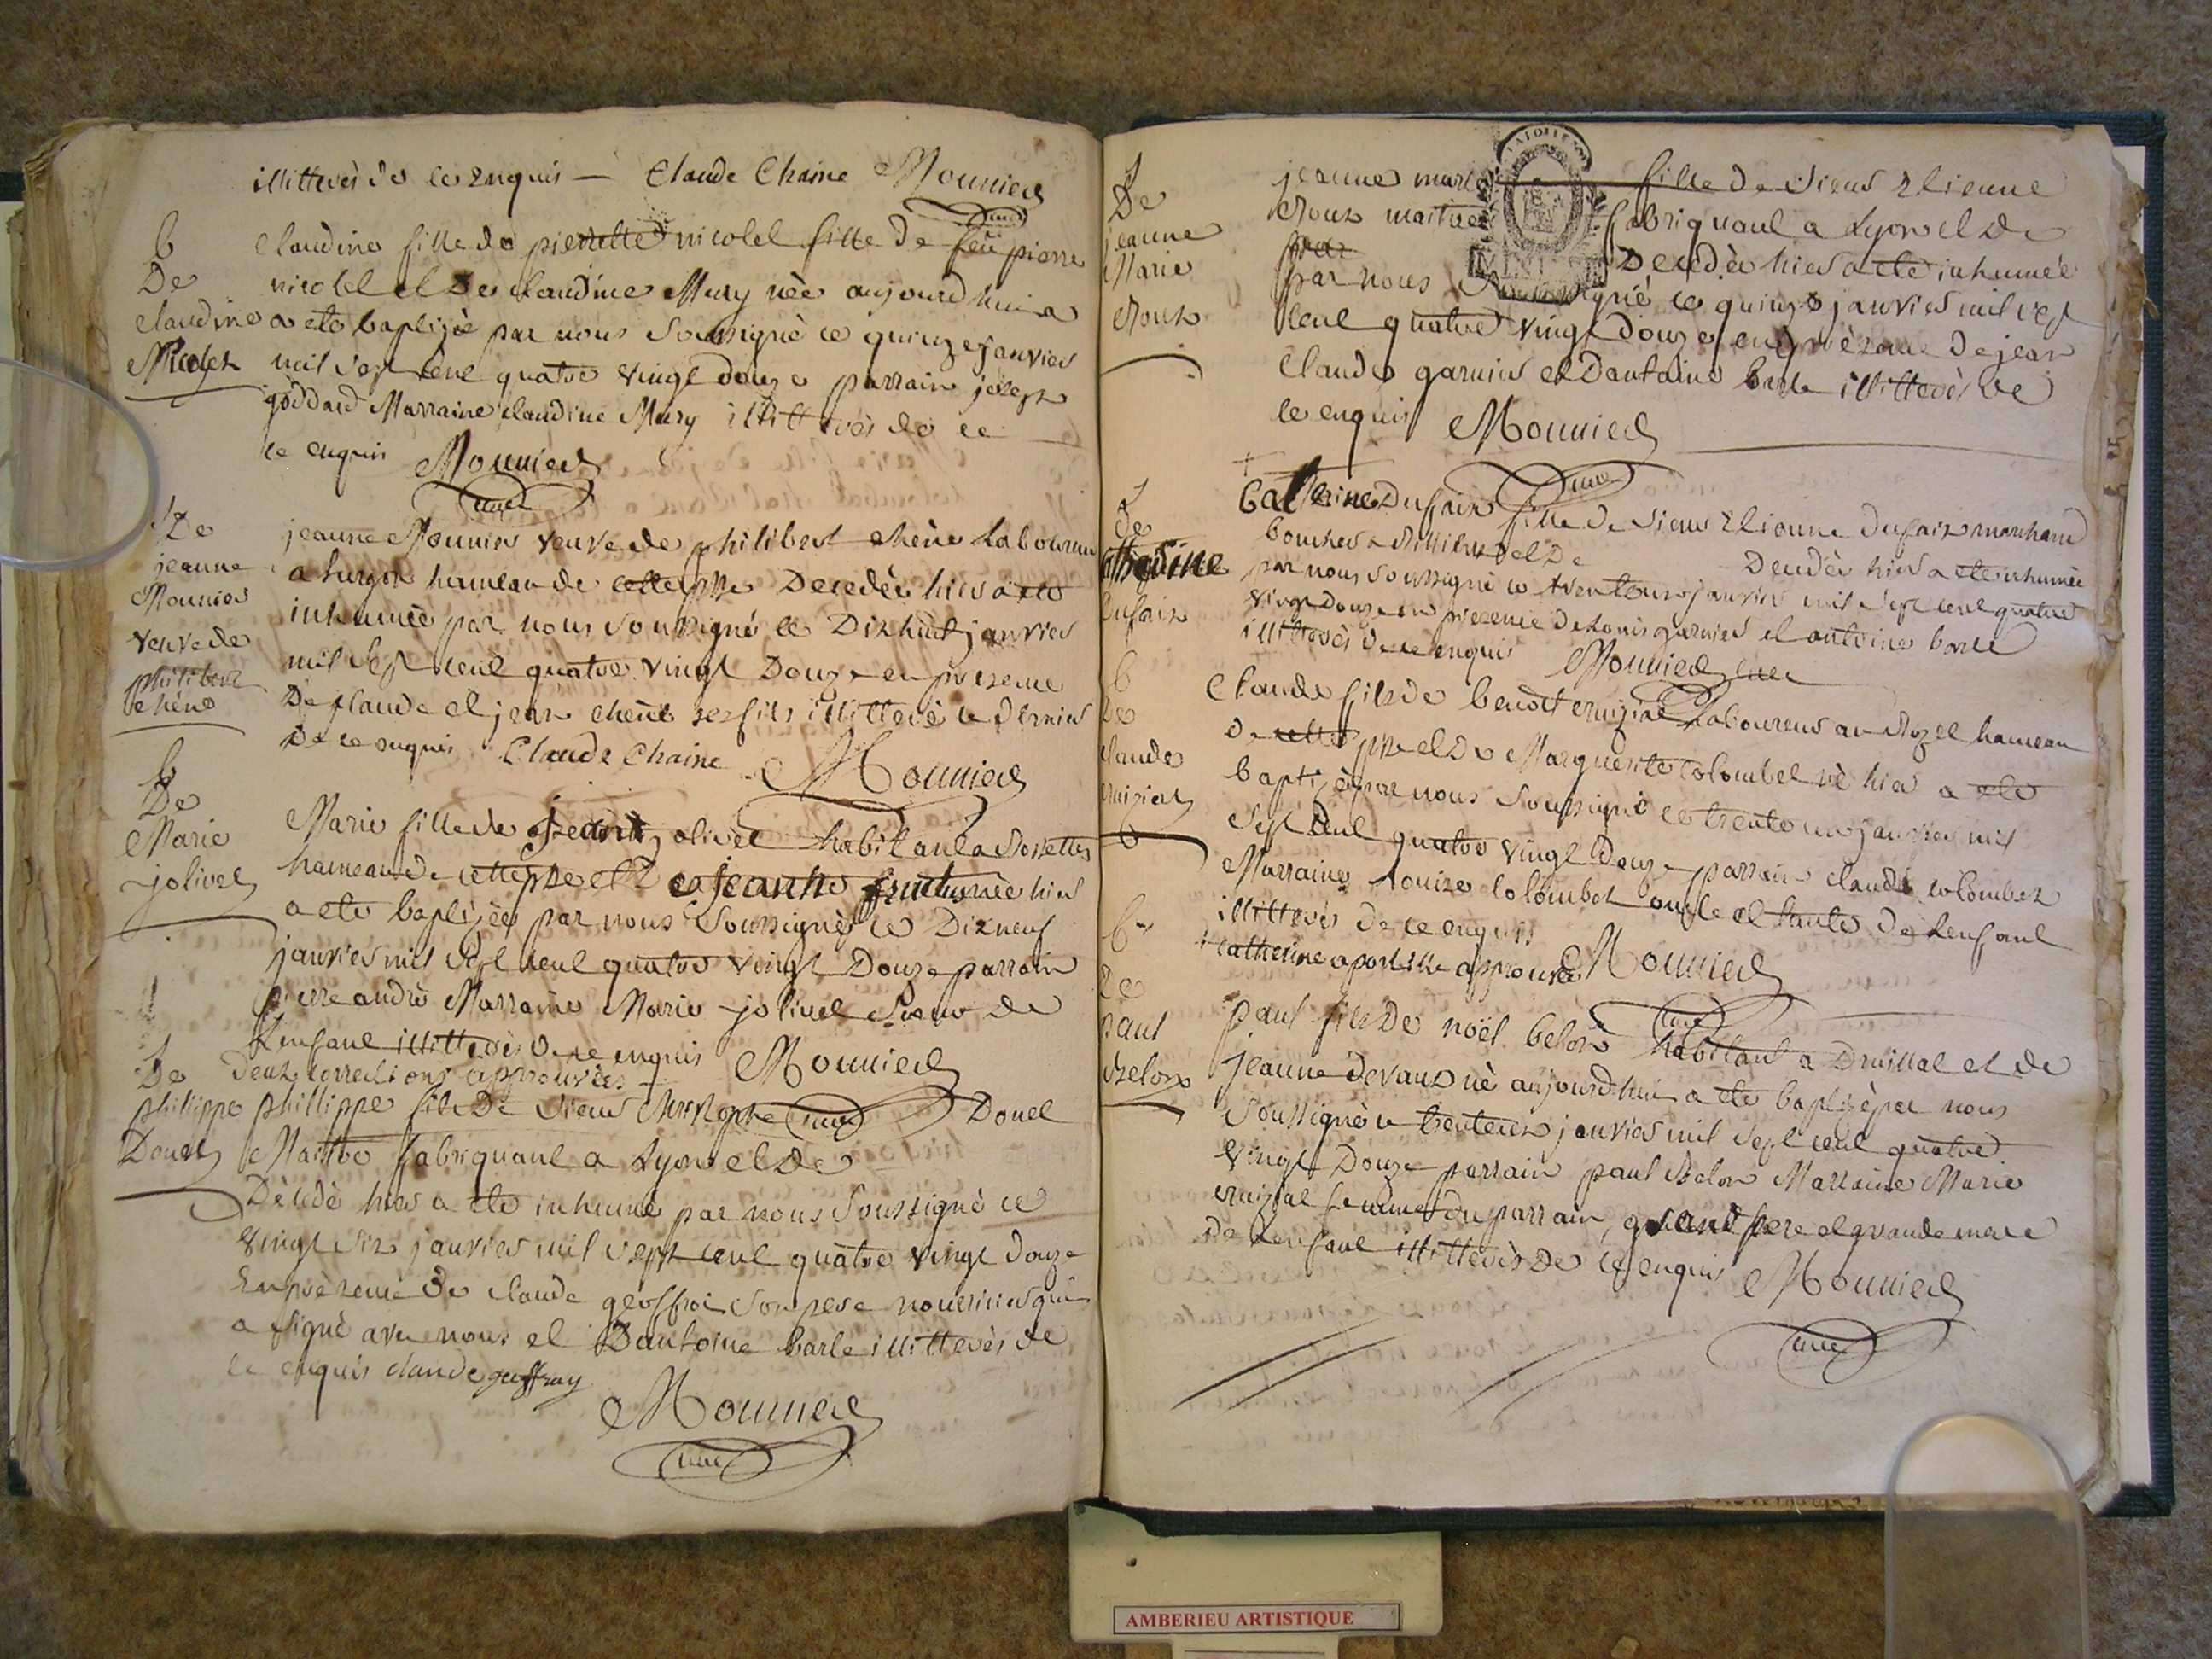 illitterés de ce enquis — Claude Chaine Mounier
b
De
Claudine
Nicolet
Claudine fille de pierrette nicolet fille de feu pierre
nicolet et De Claudine Mury née aujourdhui a
a été baptizée par nous Soussigné ce quinze janvier
mil Sept cent quatre vingt douze parrain joseph
goddard Marraine Claudine Mury illitterés de ce
ce enquis Mounier
S De
jeanne
Mounier
veuve de
philibert
chêne
jeanne Mounier veuve de philibert chêne Laboureur
a hameau de cette psse Decedée hier a été
inhumée par nous Soussigné ce Dix huit janvier
mil Sept cent quatre vingt Douze en présence
De Claude et jean chêne ses fils illitteré le dernier
De ce enquis Claude Chaine Mounier
b
De
Marie
jolivet
Marie fille de jolivet habitant a
hameau de cette psse et De jeanne née hier
a été baptizée par nous Soussigné ce Dix neuf
janvier mil Sept cent quatre vingt Douze parrain
pierre andré Marraine Marie jolivet Soeur de
Lenfant illitterés De ce enquis Mounier
deux corrections approuvées
S
De
philippe
Douet
phillippe fils De Sieur Christophe Douet
Maitre fabriquant a Lyon et De
Décédé hier a été inhumé par nous Soussigné ce
vingt six janvier mil Sept cent quatre vingt douze
En présence De Claude geoffroi Son pere nourricier qui
a Signé avec nous et Dantoine barle illitterés de
ce enquis claude geoffray
Mounier
S
De
jeanne
Marie
Roux
jeanne marie fille de Sieur Etienne
Roux maitre fabriquant a Lyon et De
Decedée hier a été inhumée
par nous Soussigné ce quinze janvier mil sept
cent quatre vingt douze en présence de jean
Claude garnier et Dantoine barle illitterés De
ce enquis Mounier
S
de
Catherine
dufaix
+
Catherine Dufaix fille de Sieur Etienne Dufaix marchand
boucher et De Decedée hier a été inhumée
par nous Soussigné ce trente un janvier mil Sept cent quatre
vingt douze en présence de Louis garnier et antoine barle
illitterés de ce enquis Mounier
b
De
Claude
Cruiziat
Claude fils de benoit cruiziat Laboureur au hameau
De cette psse et De Marguerite Colombet né hier a été
baptizé par nous Soussigné ce trente un janvier mil
Sept cent quatre vingt Douze parrain claude colombet
Marraine Louize Colombet oncle et tante de Lenfant
illitterés de ce enquis
+ Catherine apostille approuvée Mounier
b
De
paul
Belon
paul fils De noël belon habitant a Druillat et de
jeanne devaux né aujourdhui a été baptizé par nous
Soussigné ce trente un janvier mil Sept cent quatre
vingt Douze parrain paul Belon Marraine Marie
cruiziat femme du parrain, grand pere et grande mere
de Lenfant illitterés De ce enquis Mounier
AMBERIEU ARTISTIQUE